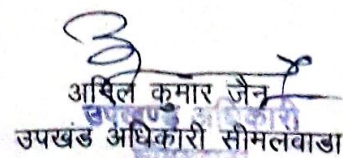 अनिल कुमार जैन
उपखण्ड अधिकारी
उपखंड अधिकारी सीमलवाडा